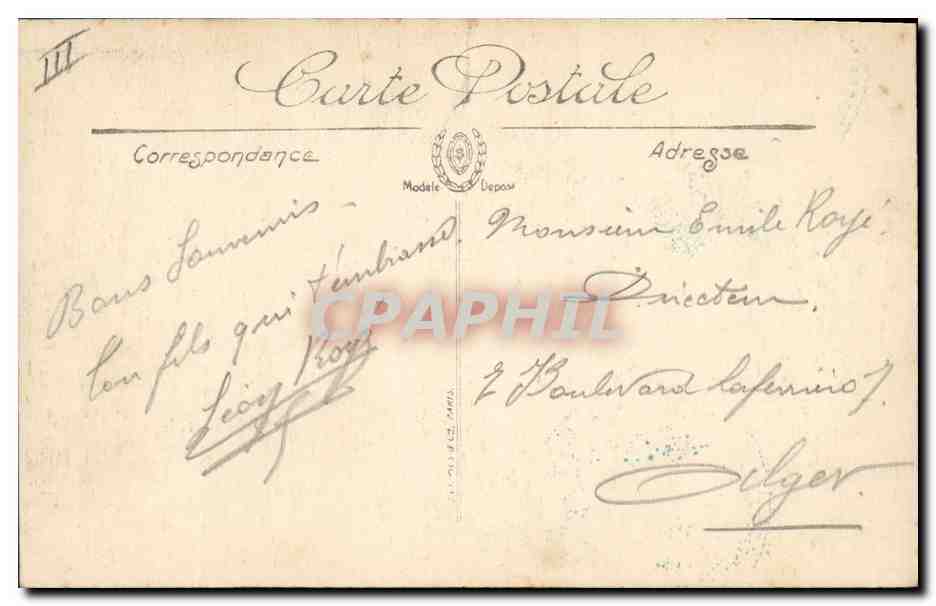 III
Carte Postale
Correspondance
Adresse
Modèle Déposé
Bons Souvenirs
Ton fils qui t'embrasse.
Léon Royé
Monsieur Emile Royé.
Directeur.
2 Boulevard Laferrière
Alger.
CPAPHIL
PARIS